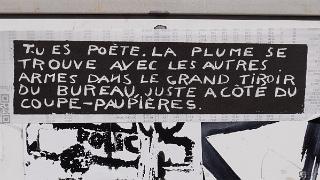 TU ES POÈTE. LA PLUME SE
TROUVE AVEC LES AUTRES
ARMES DANS LE GRAND TIROIR
DU BUREAU, JUSTE A CÔTÉ DU
COUPE-PAUPIÈRES.